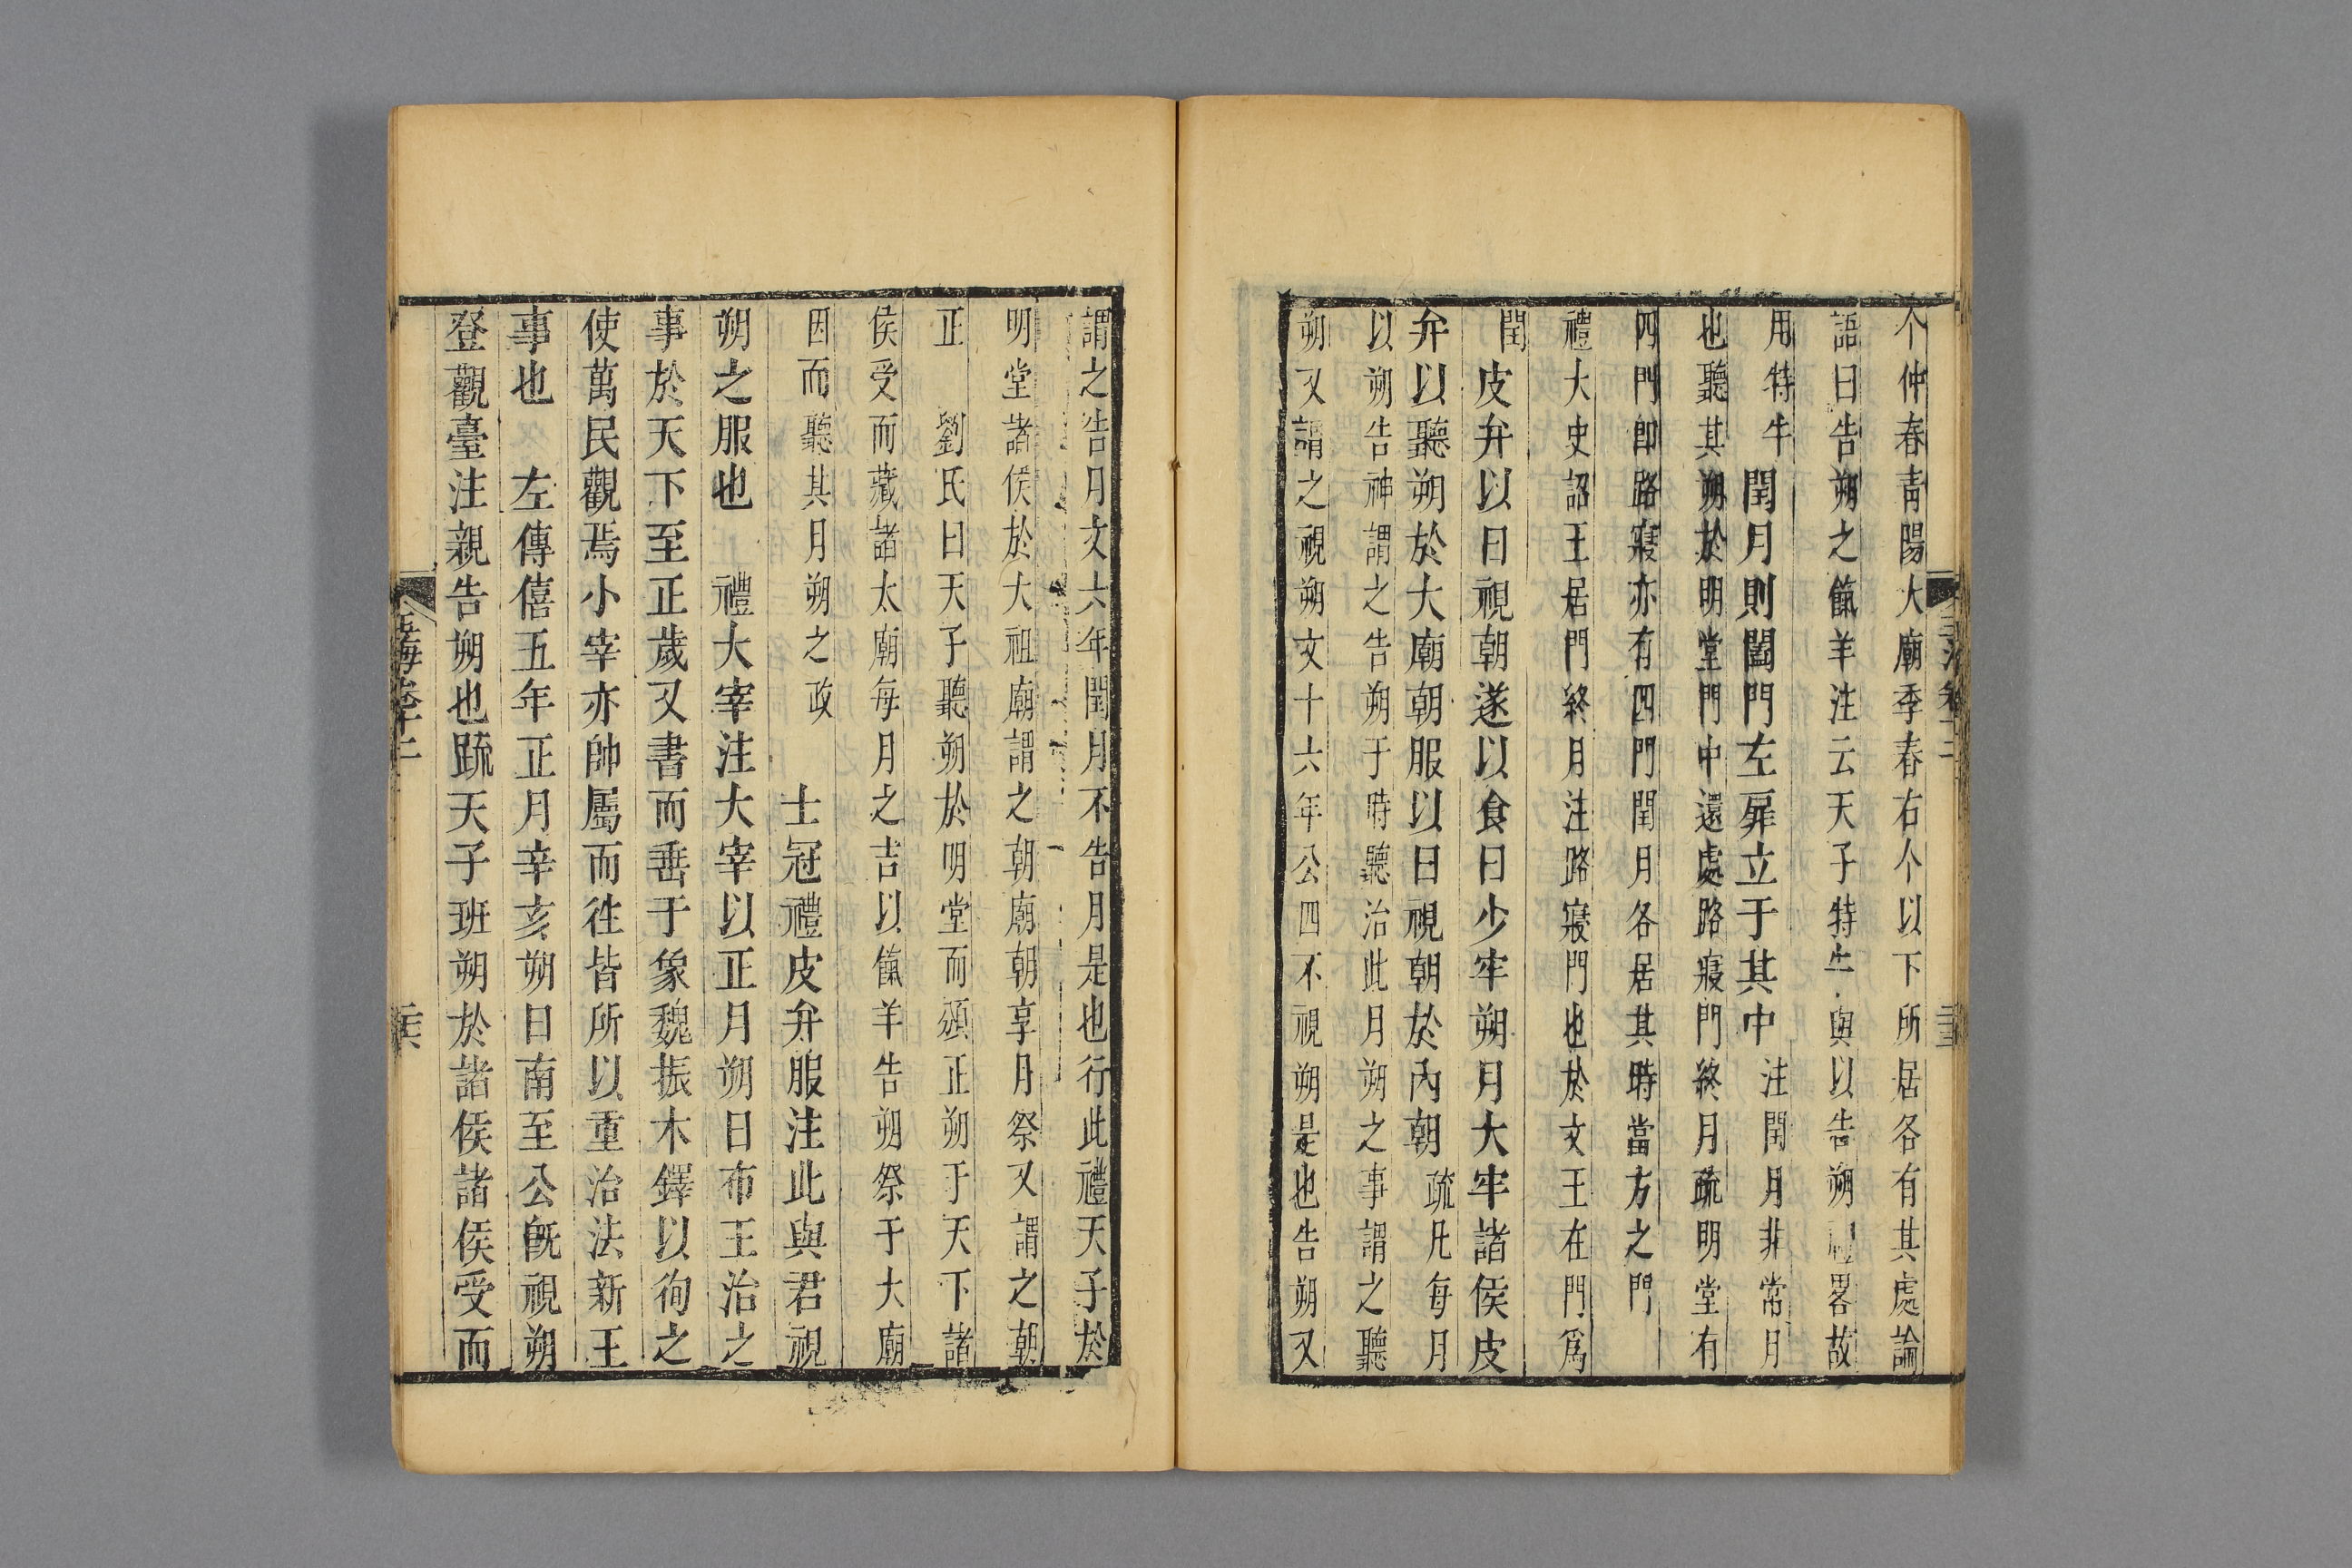 个仲春青陽大廟季春右个以下所居各有其處論
語曰告朔之餼羊注云天子特牛與以告朔禮畧故
用特牛閏月則闔門左扉立于其中注閏月非常月
也聽其朔於明堂門中還處路寢門終月疏明堂有
四門卽路寢亦有四門閏月各居其時當方之門
禮大史詔王居門終月注路寢門也於文王在門爲
閏皮弁以日視朝遂以食日少牢朔月大牢諸侯皮
弁以聽朔於大廟朝服以日視朝於內朝疏凡每月
以朔告神謂之告朔于時聽治此月朔之事謂之聽
朔又謂之視朔文十六年公四不視朔是也告朔又
謂之告月文六年閏月不告月是也行此禮天子於
明堂諸侯於大祖廟謂之朝廟朝享月祭又謂之朝
正 劉氏曰天子聽朔於明堂而頒正朔于天下諸
侯受而藏諸太廟每月之吉以餼羊告朔祭于大廟
因而聽其月朔之政 士冠禮皮弁服注此與君視
朔之服也 禮大宰注大宰以正月朔日布王治之
事於天下至正歲又書而垂于象魏振木鐸以徇之
使萬民觀焉小宰亦帥屬而往皆所以重治法新王
事也 左傳僖五年正月辛亥朔日南至公旣視朔
登觀臺注親告朔也疏天子班朔於諸侯諸侯受而
海卷十二